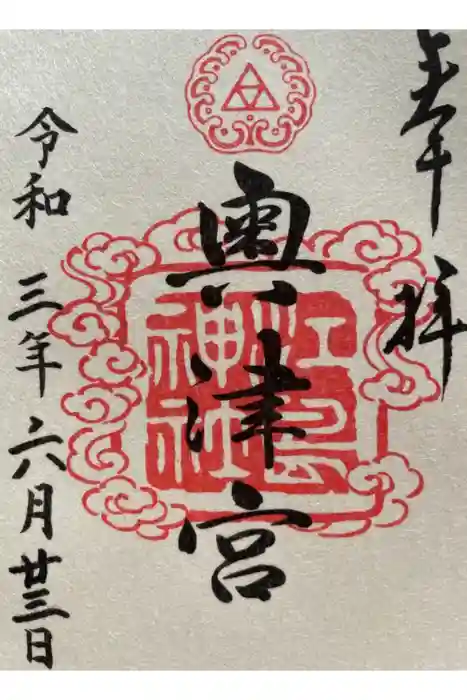 奉拝
奥津宮
江島神社
令和三年六月廿三日